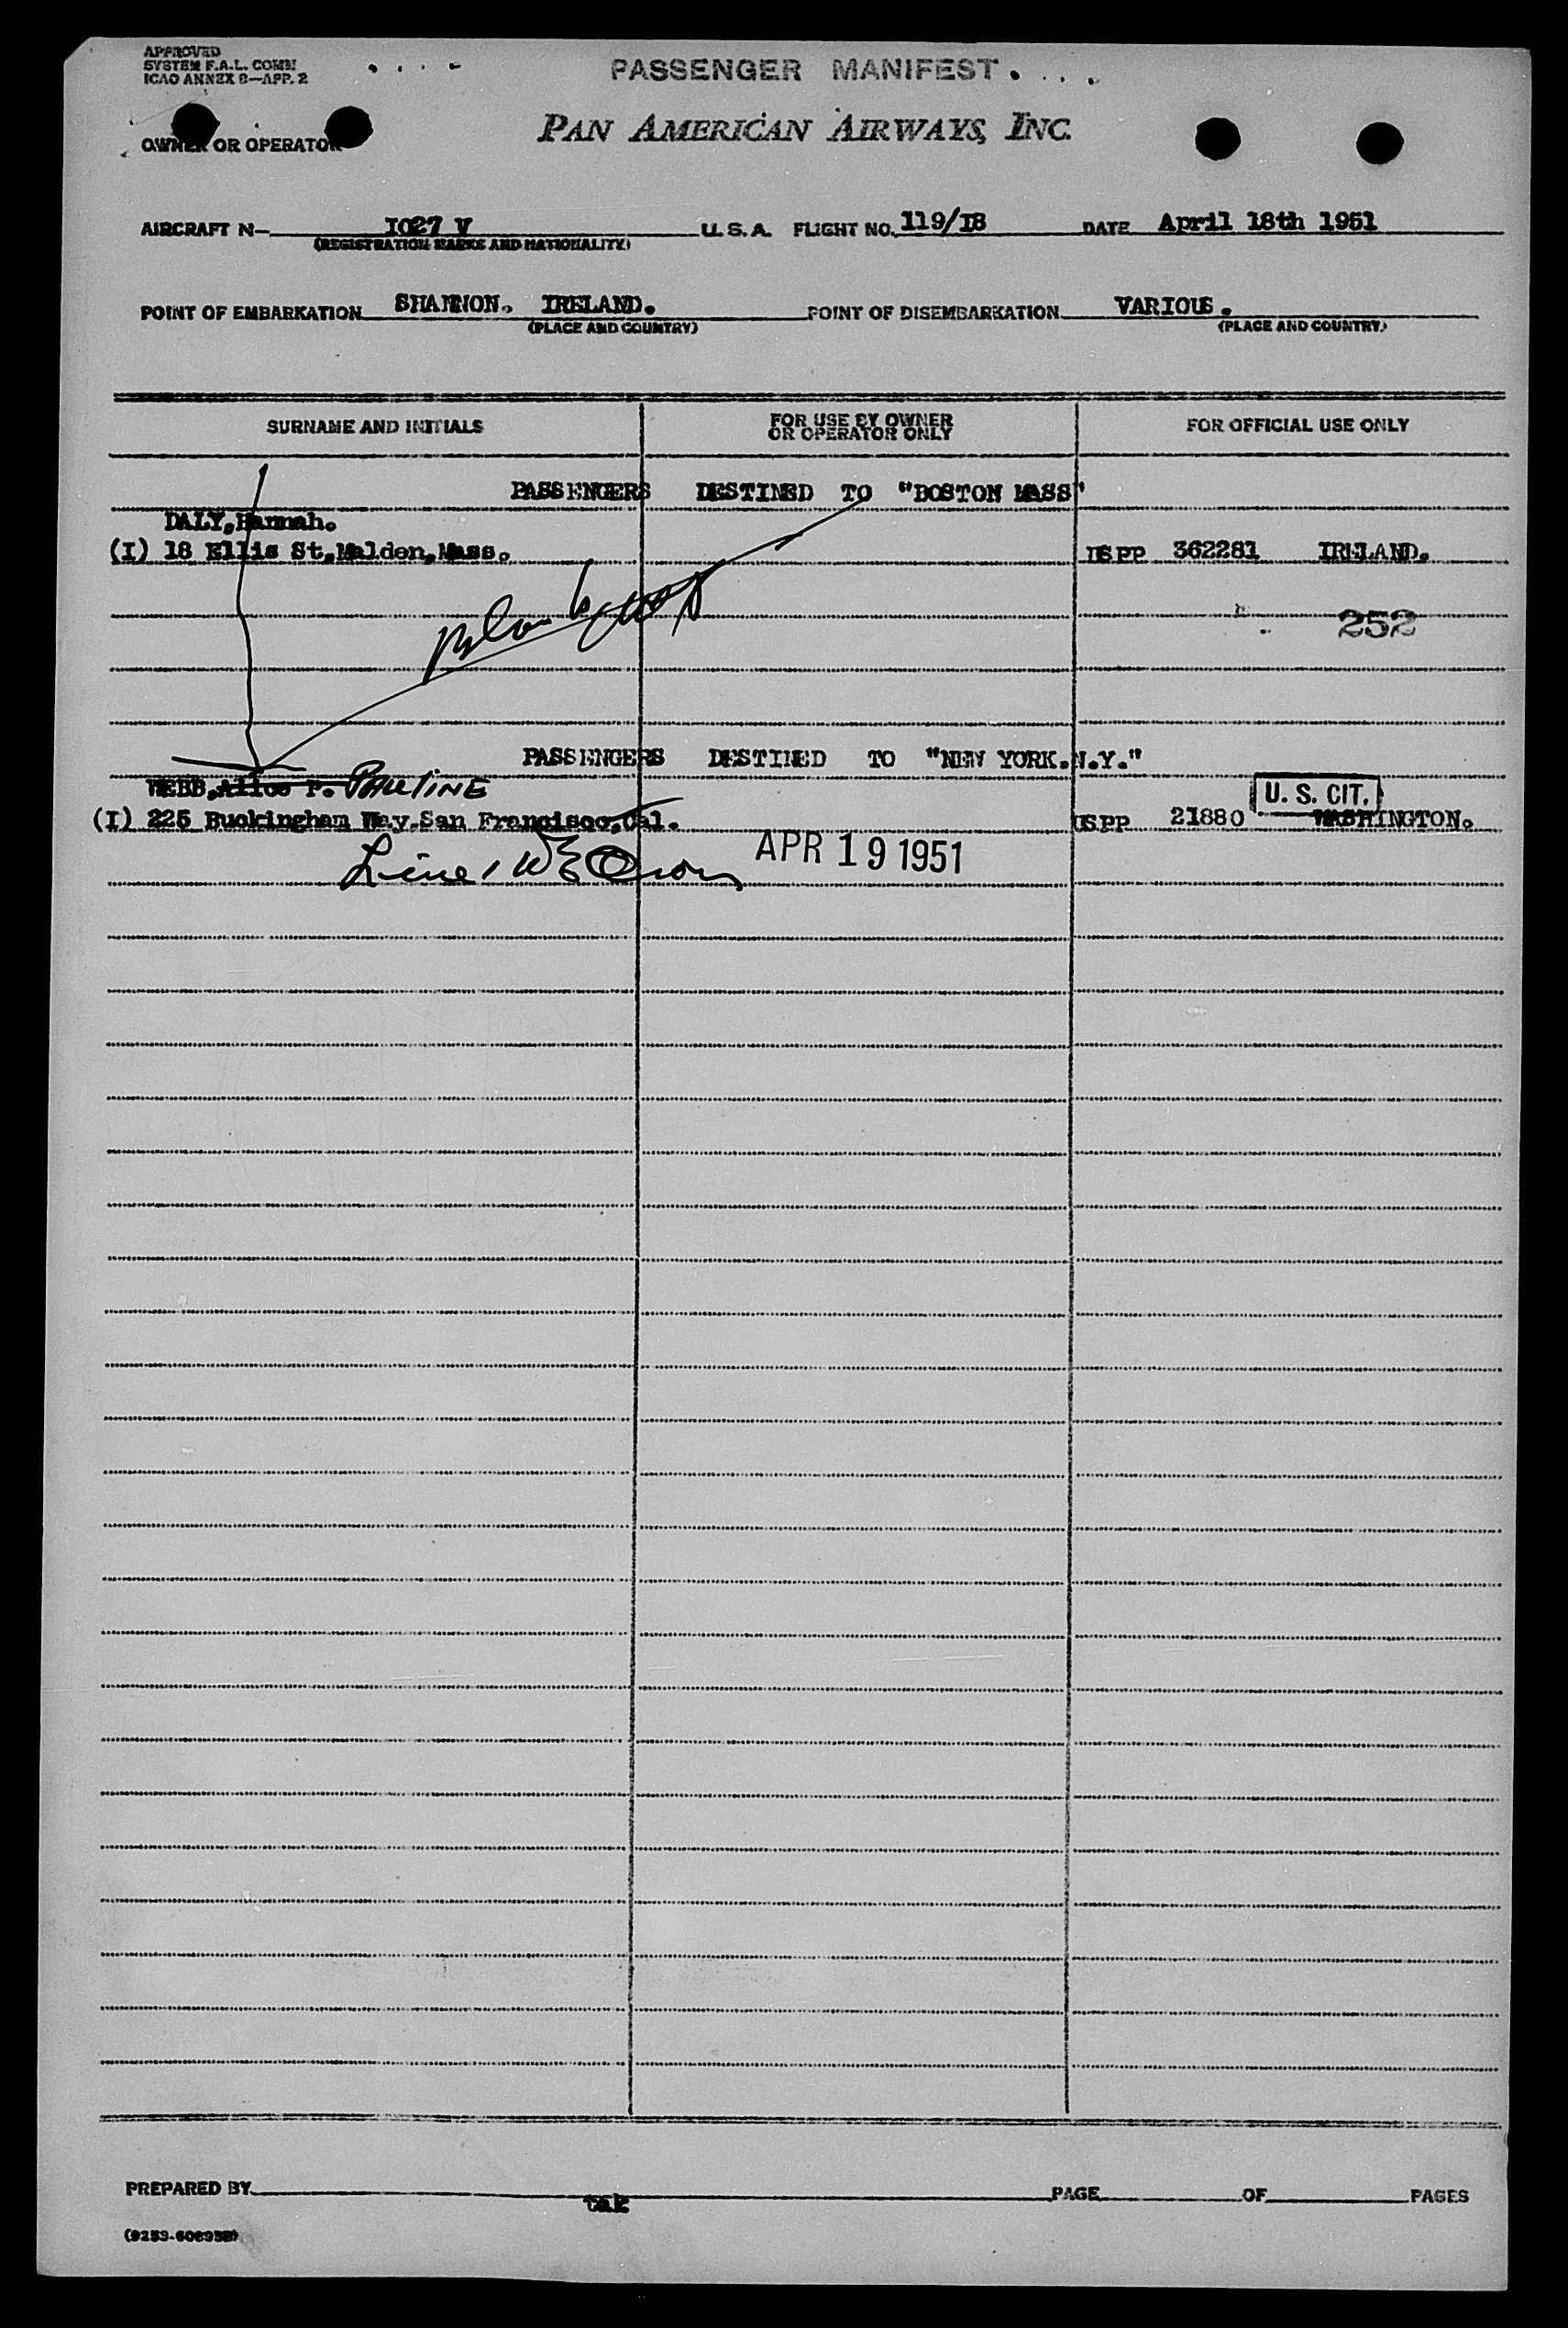 APPROVED
SYSTEM F.A.L. COMM
ICAO ANNEX 9—APP. 2
PASSENGER MANIFEST
OWNER OR OPERATOR
PAN AMERICAN AIRWAYS, INC.
AIRCRAFT N- 1027 V U.S.A. FLIGHT NO. 119/18 DATE April 18th 1951
(REGISTRATION MARKS AND NATIONALITY)
POINT OF EMBARKATION SHANNON. IRELAND. POINT OF DISEMBARKATION VARIOUS.
(PLACE AND COUNTRY) (PLACE AND COUNTRY)
SURNAME AND INITIALS FOR USE BY OWNER OR OPERATOR ONLY FOR OFFICIAL USE ONLY
PASSENGERS DESTINED TO "BOSTON MASS"
DALY, Hannah.
(I) 18 Ellis St, Malden, Mass. USPP 362281 IRELAND.
252
PASSENGERS DESTINED TO "NEW YORK.N.Y."
WEBB, Alice P. PAULINE
U. S. CIT.
(I) 225 Buckingham Way. San Francisco, Cal. USPP 21880 WASHINGTON.
APR 19 1951
Line 1
PREPARED BY tak PAGE OF PAGES